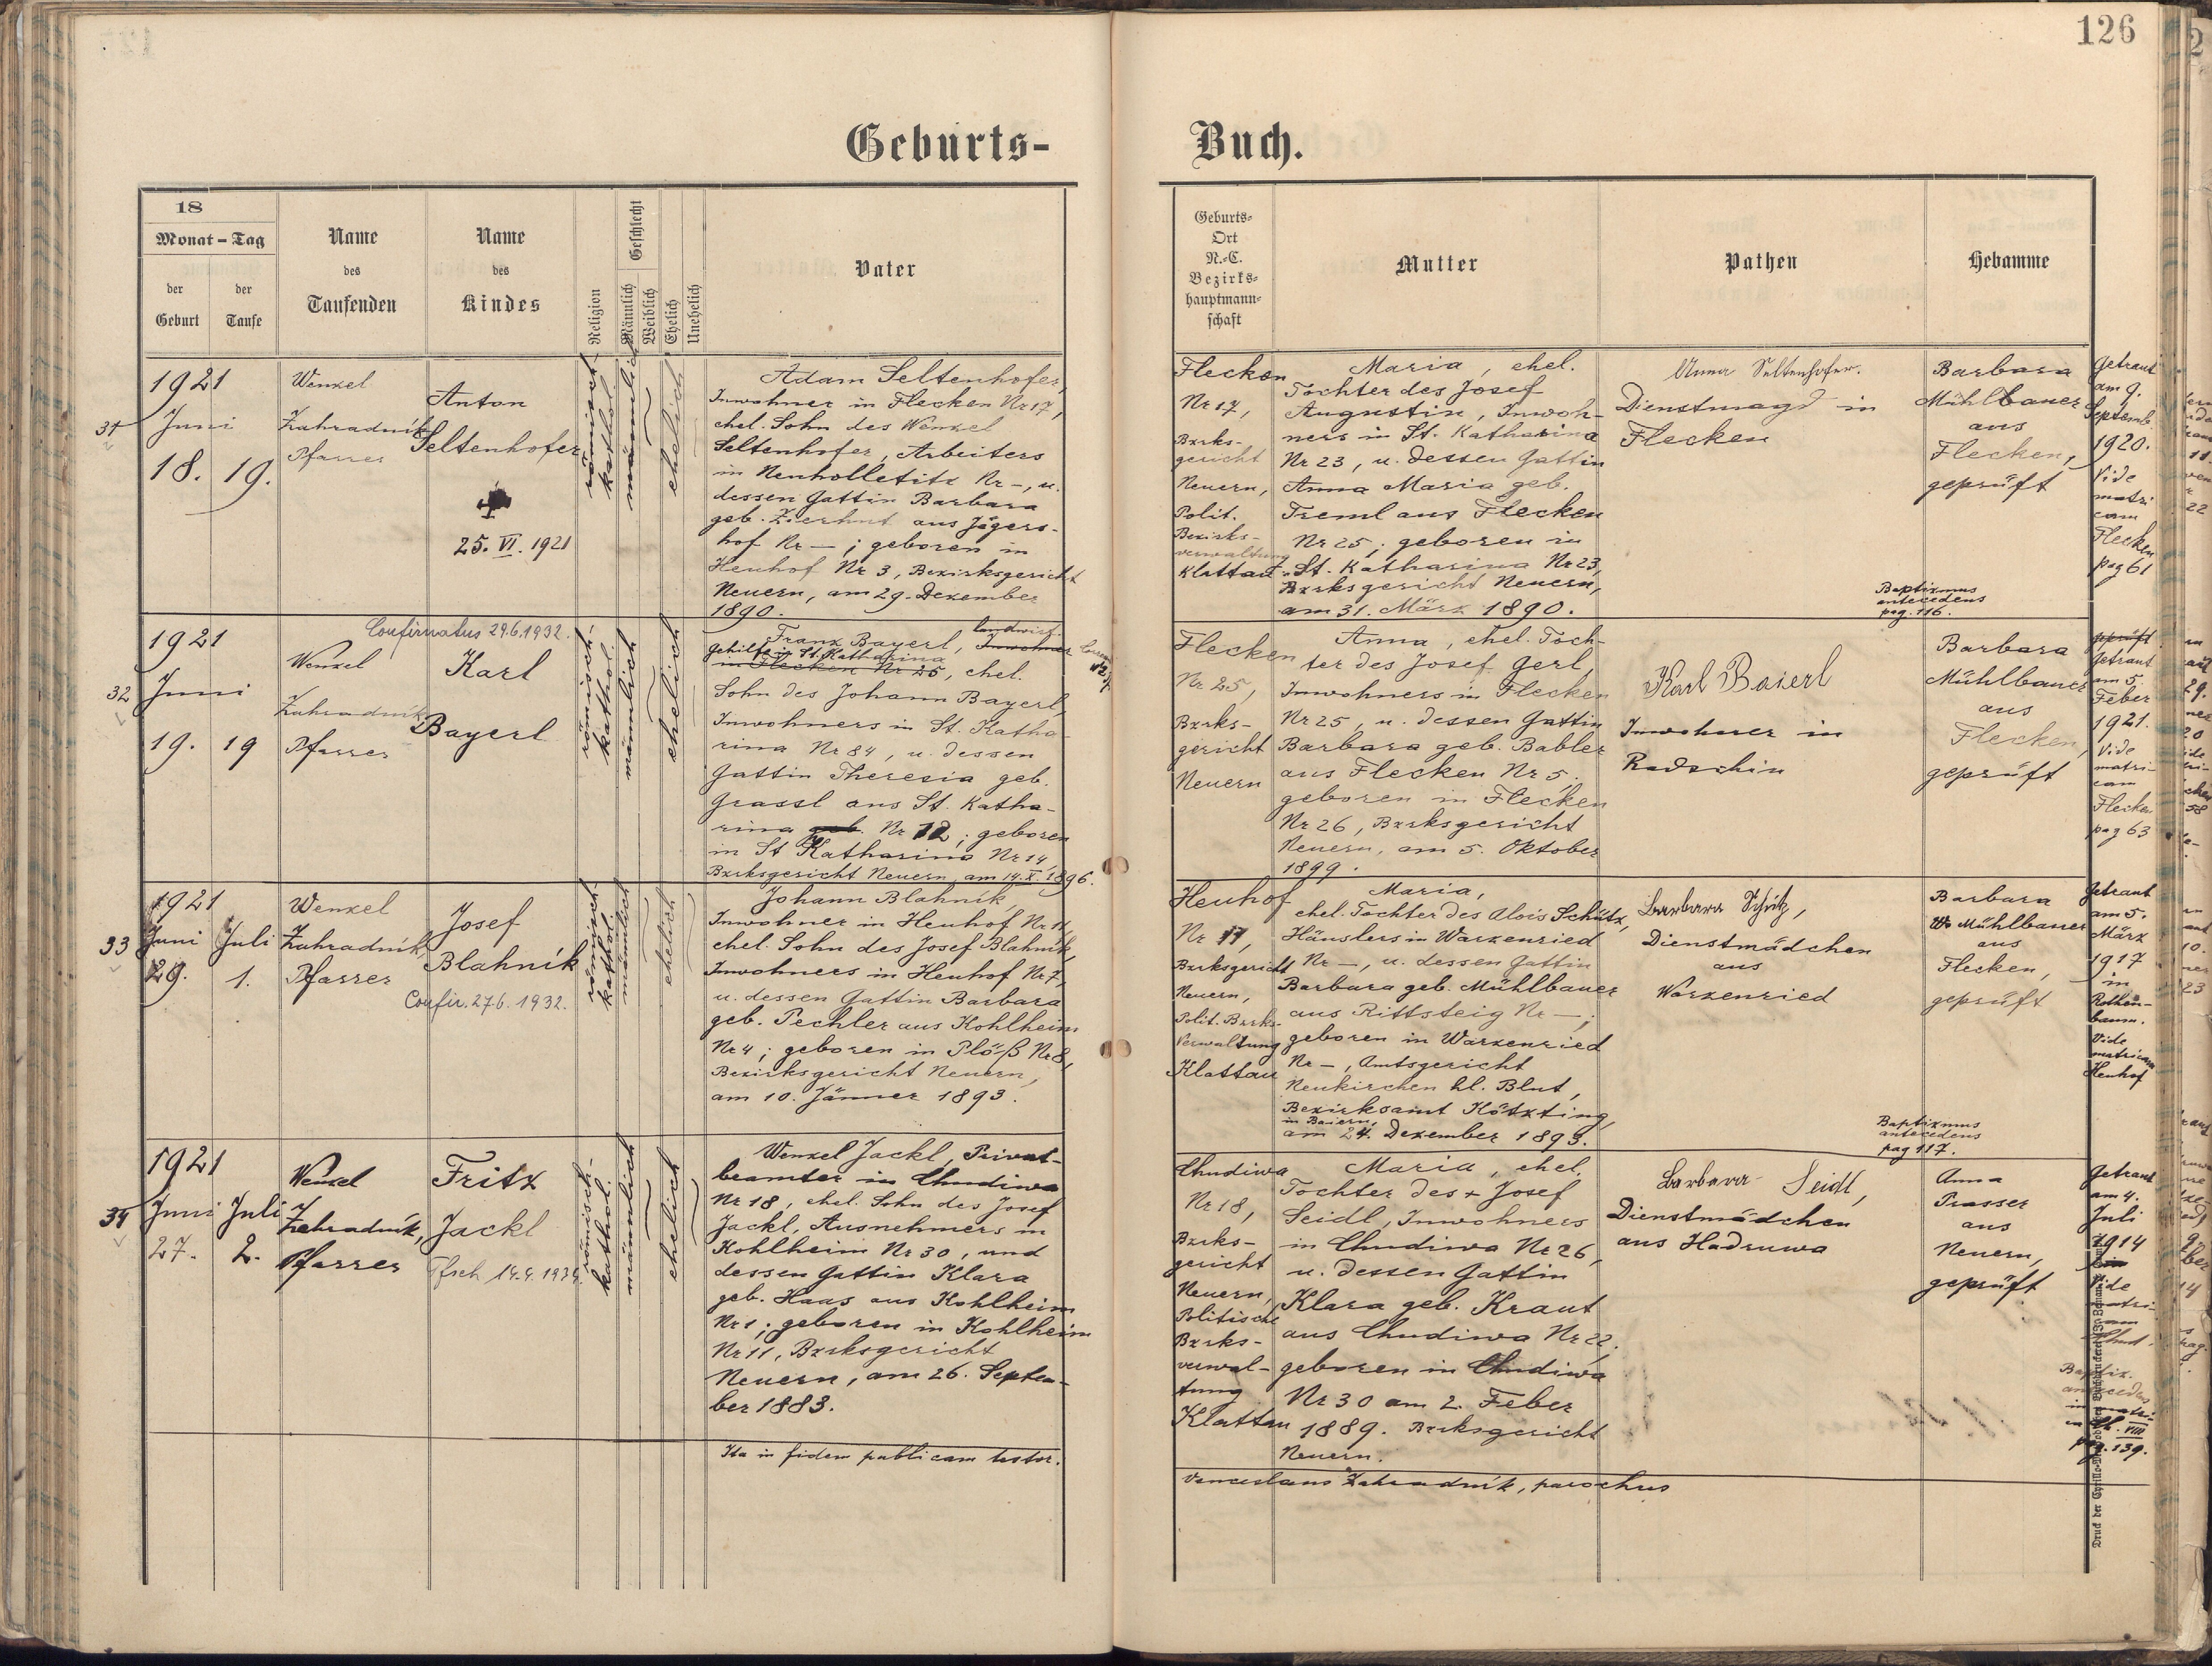 126
Geburts-Buch.
18
Monat - Tag
der Geburt
der Taufe
Name des Taufenden
Name des Kindes
Religion
Geschlecht
Männlich
Weiblich
Ehelich
Unehelich
Vater
Geburts-
Ort
N.-C.
Bezirks-
hauptmann-
schaft
Mutter
Pathen
Hebamme
1921
Juni
18. 19.
Wenzel
Zahradník
Pfarrer
Anton
Seltenhofer
25. VI. 1921
römisch-
kathol.
männlich
ehelich
Adam Seltenhofer,
Inwohner in Flecken Nr 17,
ehel. Sohn des Wenzel
Seltenhofer, Arbeiters
in Neuholletitz Nr -, u.
dessen Gattin Barbara
geb. Zierhut aus Jägers-
hof Nr - ; geboren in
Heuhof Nr 3, Bezirksgericht
Neuern, am 29. Dezember
1890.
Flecken
Nr 17,
Bzrks-
gericht
Neuern,
Polit.
Bezirks-
verwaltung
Klattau
Maria, ehel.
Tochter des Josef
Augustin, Inwoh-
ners in St. Katharina
Nr 23, u. dessen Gattin
Anna Maria geb.
Treml aus Flecken
Nr 25; geboren in
St. Katharina Nr 23,
Bzrksgericht Neuern,
am 31. März 1890.
Anna Seltenhofer.
Dienstmagd in
Flecken
Barbara
Mühlbauer
aus
Flecken,
geprüft
Getraut
am 9.
Septemb.
1920.
Vide
matri
cam
Flecken
pag 61
Baptizmus
antecedens
pag. 116.
32
1921
Juni
19. 19
Confirmatus 29.6.1932.
Wenzel
Zahradník
Pfarrer
Karl
Bayerl
römisch-
kathol.
männlich
ehelich
Franz Bayerl, landwirt. Inwohner
gehilfe in St. Katharina
in Flecken Nr 25, ehel.
Sohn des Johann Bayerl,
Inwohners in St. Katha-
rina Nr 84, u. dessen
Gattin Theresia geb.
Grassl aus St. Katha-
rina geb. Nr 12; geboren
in St Katharina Nr 14,
Bzrksgericht Neuern, am 14. X. 1896.
Flecken
Nr 25,
Bzrks-
gericht
Neuern
Anna, ehel. Toch-
ter des Josef Gerl,
Inwohners in Flecken
Nr 25, u. dessen Gattin
Barbara geb. Babler
aus Flecken Nr 5.
geboren in Flecken
Nr 26, Bzrksgericht
Neuern, am 5. Oktober
1899.
Karl Baierl
Inwohner in
Radschin
Barbara
Mühlbauer
aus
Flecken,
geprüft
geprüft
Getraut
am 5.
Feber
1921.
Vide
matri-
cam
Flecken
pag 63
33
1921
Juni Juli
29. 1.
Wenzel
Zahradník,
Pfarrer
Josef
Blahník
Confir. 27.6. 1932.
römisch
kathol.
männlich
ehelich
Johann Blahník,
Inwohner in Heuhof Nr 11,
ehel. Sohn des Josef Blahník,
Inwohners in Heuhof Nr 7,
u. dessen Gattin Barbara
geb. Pechler aus Kohlheim
Nr 4; geboren in Plöß Nr 8,
Bezirksgericht Neuern,
am 10. Jänner 1893.
Heuhof
Nr 11,
Bzrksgericht
Neuern,
Polit. Bzrks-
Verwaltung
Klattau
Maria,
ehel. Tochter des Alois Schütz,
Häuslers in Warzenried
Nr -, u. dessen Gattin
Barbara geb. Mühlbauer
aus Rittsteig Nr -;
geboren in Warzenried
Nr -, Amtsgericht
Neukirchen hl. Blut,
Bezirksamt Kötzting,
in Baiern,
am 24. Dezember 1893.
Barbara Schütz,
Dienstmädchen
aus
Warzenried
Barbara
Mühlbauer
aus
Flecken,
geprüft
Getraut
am 5.
März
1917
in
Rothen-
baum.
Vide
matricam
Heuhof
Baptizmus
antecedens
pag 117.
34
1921
Juni Juli
27. 2.
Wenzel
Zahradník,
Pfarrer
Fritz
Jackl
römisch-
kathol.
männlich
ehelich
Wenzel Jackl, Privat-
beamter in Chudiwa
Nr 18, ehel. Sohn des Josef
Jackl, Ausnehmers in
Kohlheim Nr 30, und
dessen Gattin Klara
geb. Haas aus Kohlheim
Nr 1; geboren in Kohlheim
Nr 11, Bzrksgericht
Neuern, am 26. Septem-
ber 1883.
Chudiwa
Nr 18,
Bzrks-
gericht
Neuern,
Politische
Bzrks-
verwal-
tung
Klattau
Maria, ehel.
Tochter des + Josef
Seidl, Inwohners
in Chudiwa Nr 26,
u. dessen Gattin
Klara geb. Kraut
aus Chudiwa Nr 22.
geboren in Chudiwa
Nr 30 am 2. Feber
1889. Bzrksgericht
Neuern.
Barbara Seidl,
Dienstmädchen
aus Hadruwa
Anna
Prasser
aus
Neuern,
geprüft
Getraut
am 4.
Juli
1914
Vide
matri-
cam
Chud.
Baptiz.
antecedens
in matri-
VIII
pag. 139.
Ita in fidem publicam testor.
Venceslaus Zahradník, parochus